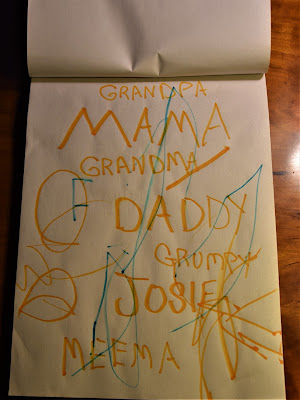 GRANDPA
MAMA
GRANDMA
F
DADDY
GRUMPY
JOSIE
MEEMA